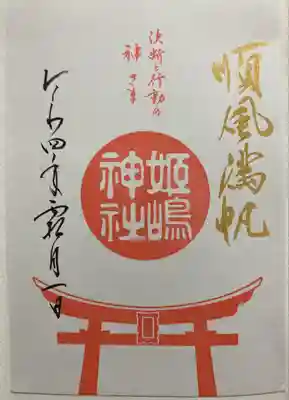 順風満帆
決断と行動の
神さま
姫嶋
神社
令和四年霜月一日